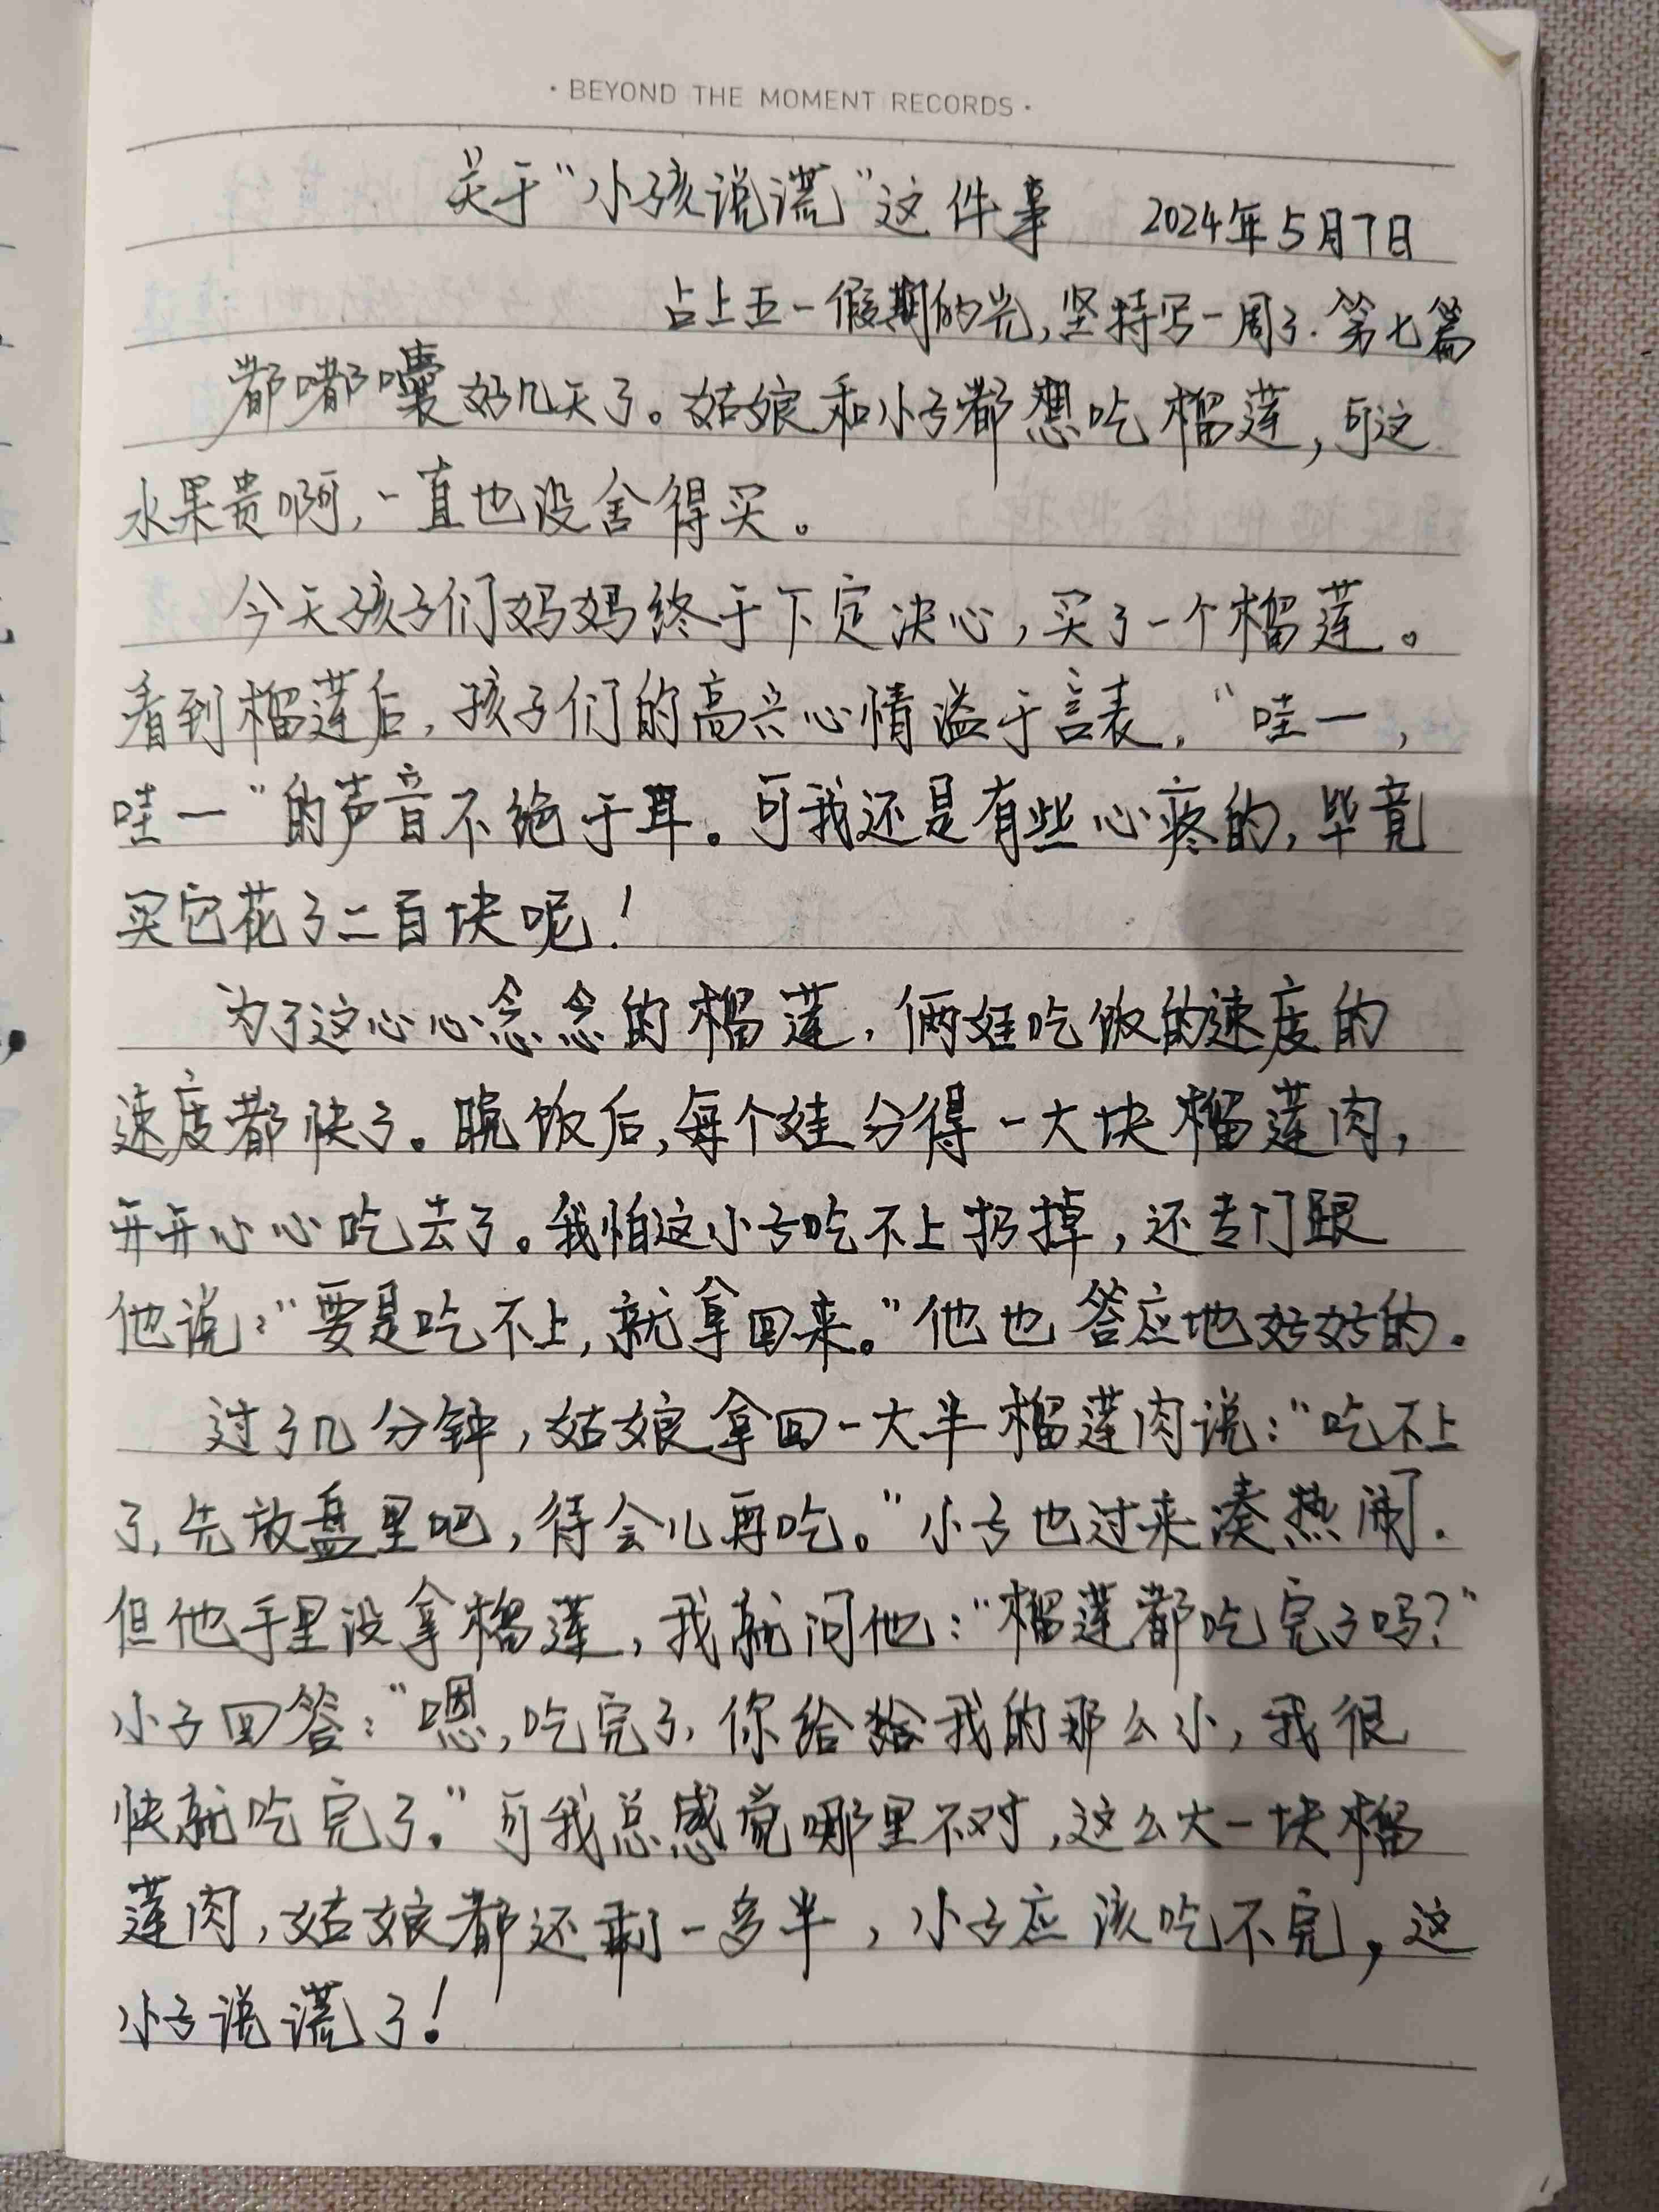 · BEYOND THE MOMENT RECORDS ·
关于“小孩说谎”这件事 2024年5月7日
占上五一假期的光,坚持写一周了.第七篇
都嘟囔好几天了。姑娘和小子都想吃榴莲,可这
水果贵啊,一直也没舍得买。
今天孩子们妈妈终于下定决心,买了一个榴莲。
看到榴莲后,孩子们的高兴心情溢于言表,“哇一,
哇一”的声音不绝于耳。可我还是有些心疼的,毕竟
买它花了二百块呢!
为了这心心念念的榴莲,俩娃吃饭的速度的
速度都快了。晚饭后,每个娃分得一大块榴莲肉,
开开心心吃去了。我怕这小子吃不上扔掉,还专门跟
他说:“要是吃不上,就拿回来。”他也答应地好好的。
过了几分钟,姑娘拿回一大半榴莲肉说:“吃不上
了,先放盘里吧,待会儿再吃。”小子也过来凑热闹.
但他手里没拿榴莲,我就问他:“榴莲都吃完了吗?”
小子回答:“嗯,吃完了,你给给我的那么小,我很
快就吃完了。”可我总感觉哪里不对,这么大一块榴
莲肉,姑娘都还剩一多半,小子应该吃不完,这
小子说谎了!